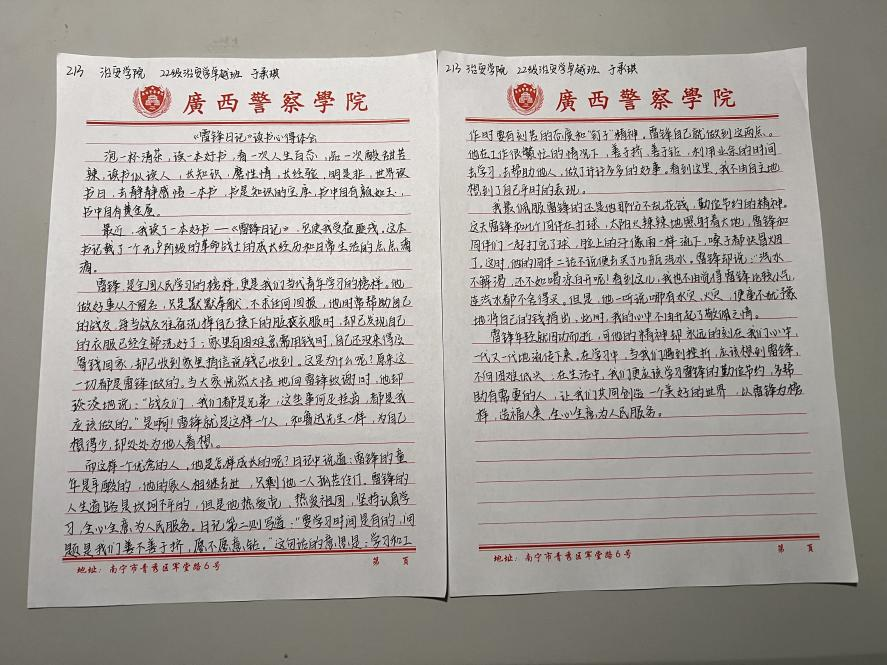 213 治安学院 22级治安学卓越班 于承琪
廣西警察學院
《雷锋日记》读书心得体会
泡一杯清茶，读一本好书，看一次人生百态，品一次酸甜苦
辣，读书似读人，长知识，磨性情，长经验，明是非，世界读
书日，去静静感悟一本书，书是知识的宝库，书中自有颜如玉，
书中自有黄金屋。
最近，我读了一本好书——《雷锋日记》，它使我受益匪浅，这本
书记载了一个无产阶级的革命战士的成长经历和日常生活的点点滴
滴。
雷锋是全国人民学习的榜样，更是我们当代青年学习的榜样。他
做好事从不留名，只是默默奉献，不求任何回报，他时常帮助自己
的战友，每当战友准备洗掉自己换下的脏衣服时，却已发现自己
的衣服已经全部洗好了；家里有困难急需用钱时，自己还没来得及
寄钱回家，却已收到家里捎信说钱已收到。这是为什么呢？原来这
一切都是雷锋做的。当大家恍然大悟地向雷锋致谢时，他却
淡淡地说：“战友们，我们都是兄弟，这些事何足挂齿，都是我
应该做的。”是啊！雷锋就是这样一个人，和鲁迅先生一样，为自己
想得少，却处处为他人着想。
而这样一个优秀的人，他是怎样成长的呢？日记中说道：雷锋的童
年是辛酸的，他的家人相继去世，只剩他一人孤苦伶仃。雷锋的
人生道路是坎坷不平的，但是他热爱党、热爱祖国，坚持认真学
习，全心全意为人民服务。日记第二则写道：“要学习时间是有的，问
题是我们善不善于挤，愿不愿意钻。”这句话的意思是：学习和工
地址：南宁市青秀区军堂路6号 第 页
213 治安学院 22级治安学卓越班 于承琪
廣西警察學院
作时要有刻苦的态度和“钉子”精神。雷锋自己就做到这两点。
他在工作很繁忙的情况下，善于挤，善于钻，利用业余的时间
去学习，去帮助他人，做了许许多多的好事。看到这里，我不由自主地
想到了自己平时的表现。
我最佩服雷锋的还是他那份不乱花钱，勤俭节约的精神。
这天雷锋和几个同伴在打球，太阳火辣辣地照射着大地，雷锋和
同伴们一起打完了球，脸上的汗像雨一样流下，嗓子都快冒烟
了，这时，他的同伴二话不说便去买了几瓶汽水，雷锋却说：汽水
不解渴，还不如喝凉白开呢！看到这儿，我也不由觉得雷锋比较小气，
连汽水都不舍得买。但是，他一听说哪有水灾，火灾，便毫不犹豫
地将自己的钱捐出，此时，我的心中不由升起了敬佩之情。
雷锋年轻就因劳而折，可他的精神却永远的刻在我们心中，
一代又一代地流传下来，在学习中，当我们遇到挫折，应该想到雷锋，
不向困难低头；在生活中，我们更应该学习雷锋的勤俭节约，多帮
助有需要的人，让我们共同创造一个美好的世界，以雷锋为榜
样，造福人类，全心全意为人民服务。
地址：南宁市青秀区军堂路6号 第 页